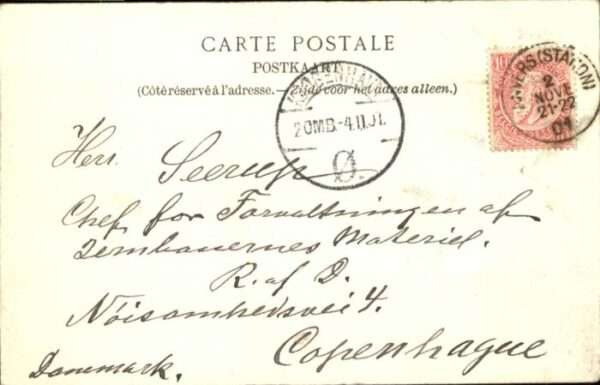 CARTE POSTALE
POSTKAART
(Côté réservé à l'adresse. — Zijde voor het adres alleen.)
KJØBENHAVN
2OMB.-4.11.01.
Ø
ANVERS (STATION)
2
NOVE
21-22
01
Herr Seerup
Chef for Forvaltningen af
Jernbanernes Materiel.
R. af D.
Nöisomhedsvei 4.
Copenhague
Danmark.